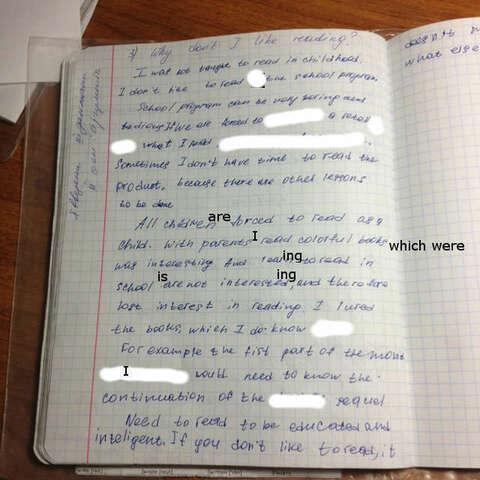 3) Why don't I like reading?
I was not taught to read in childhood.
I don't like to read the school program.
School program can be very boring and
tedious. If We are forced to a retell
what I read
Sometimes I don't have time to read the
product, because there are other lessons
to be done
All children are forced to read as a
child. With parents I read colorful books which were
was interesting And reading to read in
school is are not interesting, and therefore
lost interest in reading. I
the books, which I do know
For example the fist part of the movie
I would need to know the
continuation of the sequel
Need to read to be educated and
inteligent. If you don't like to read, it
doesn't
what else